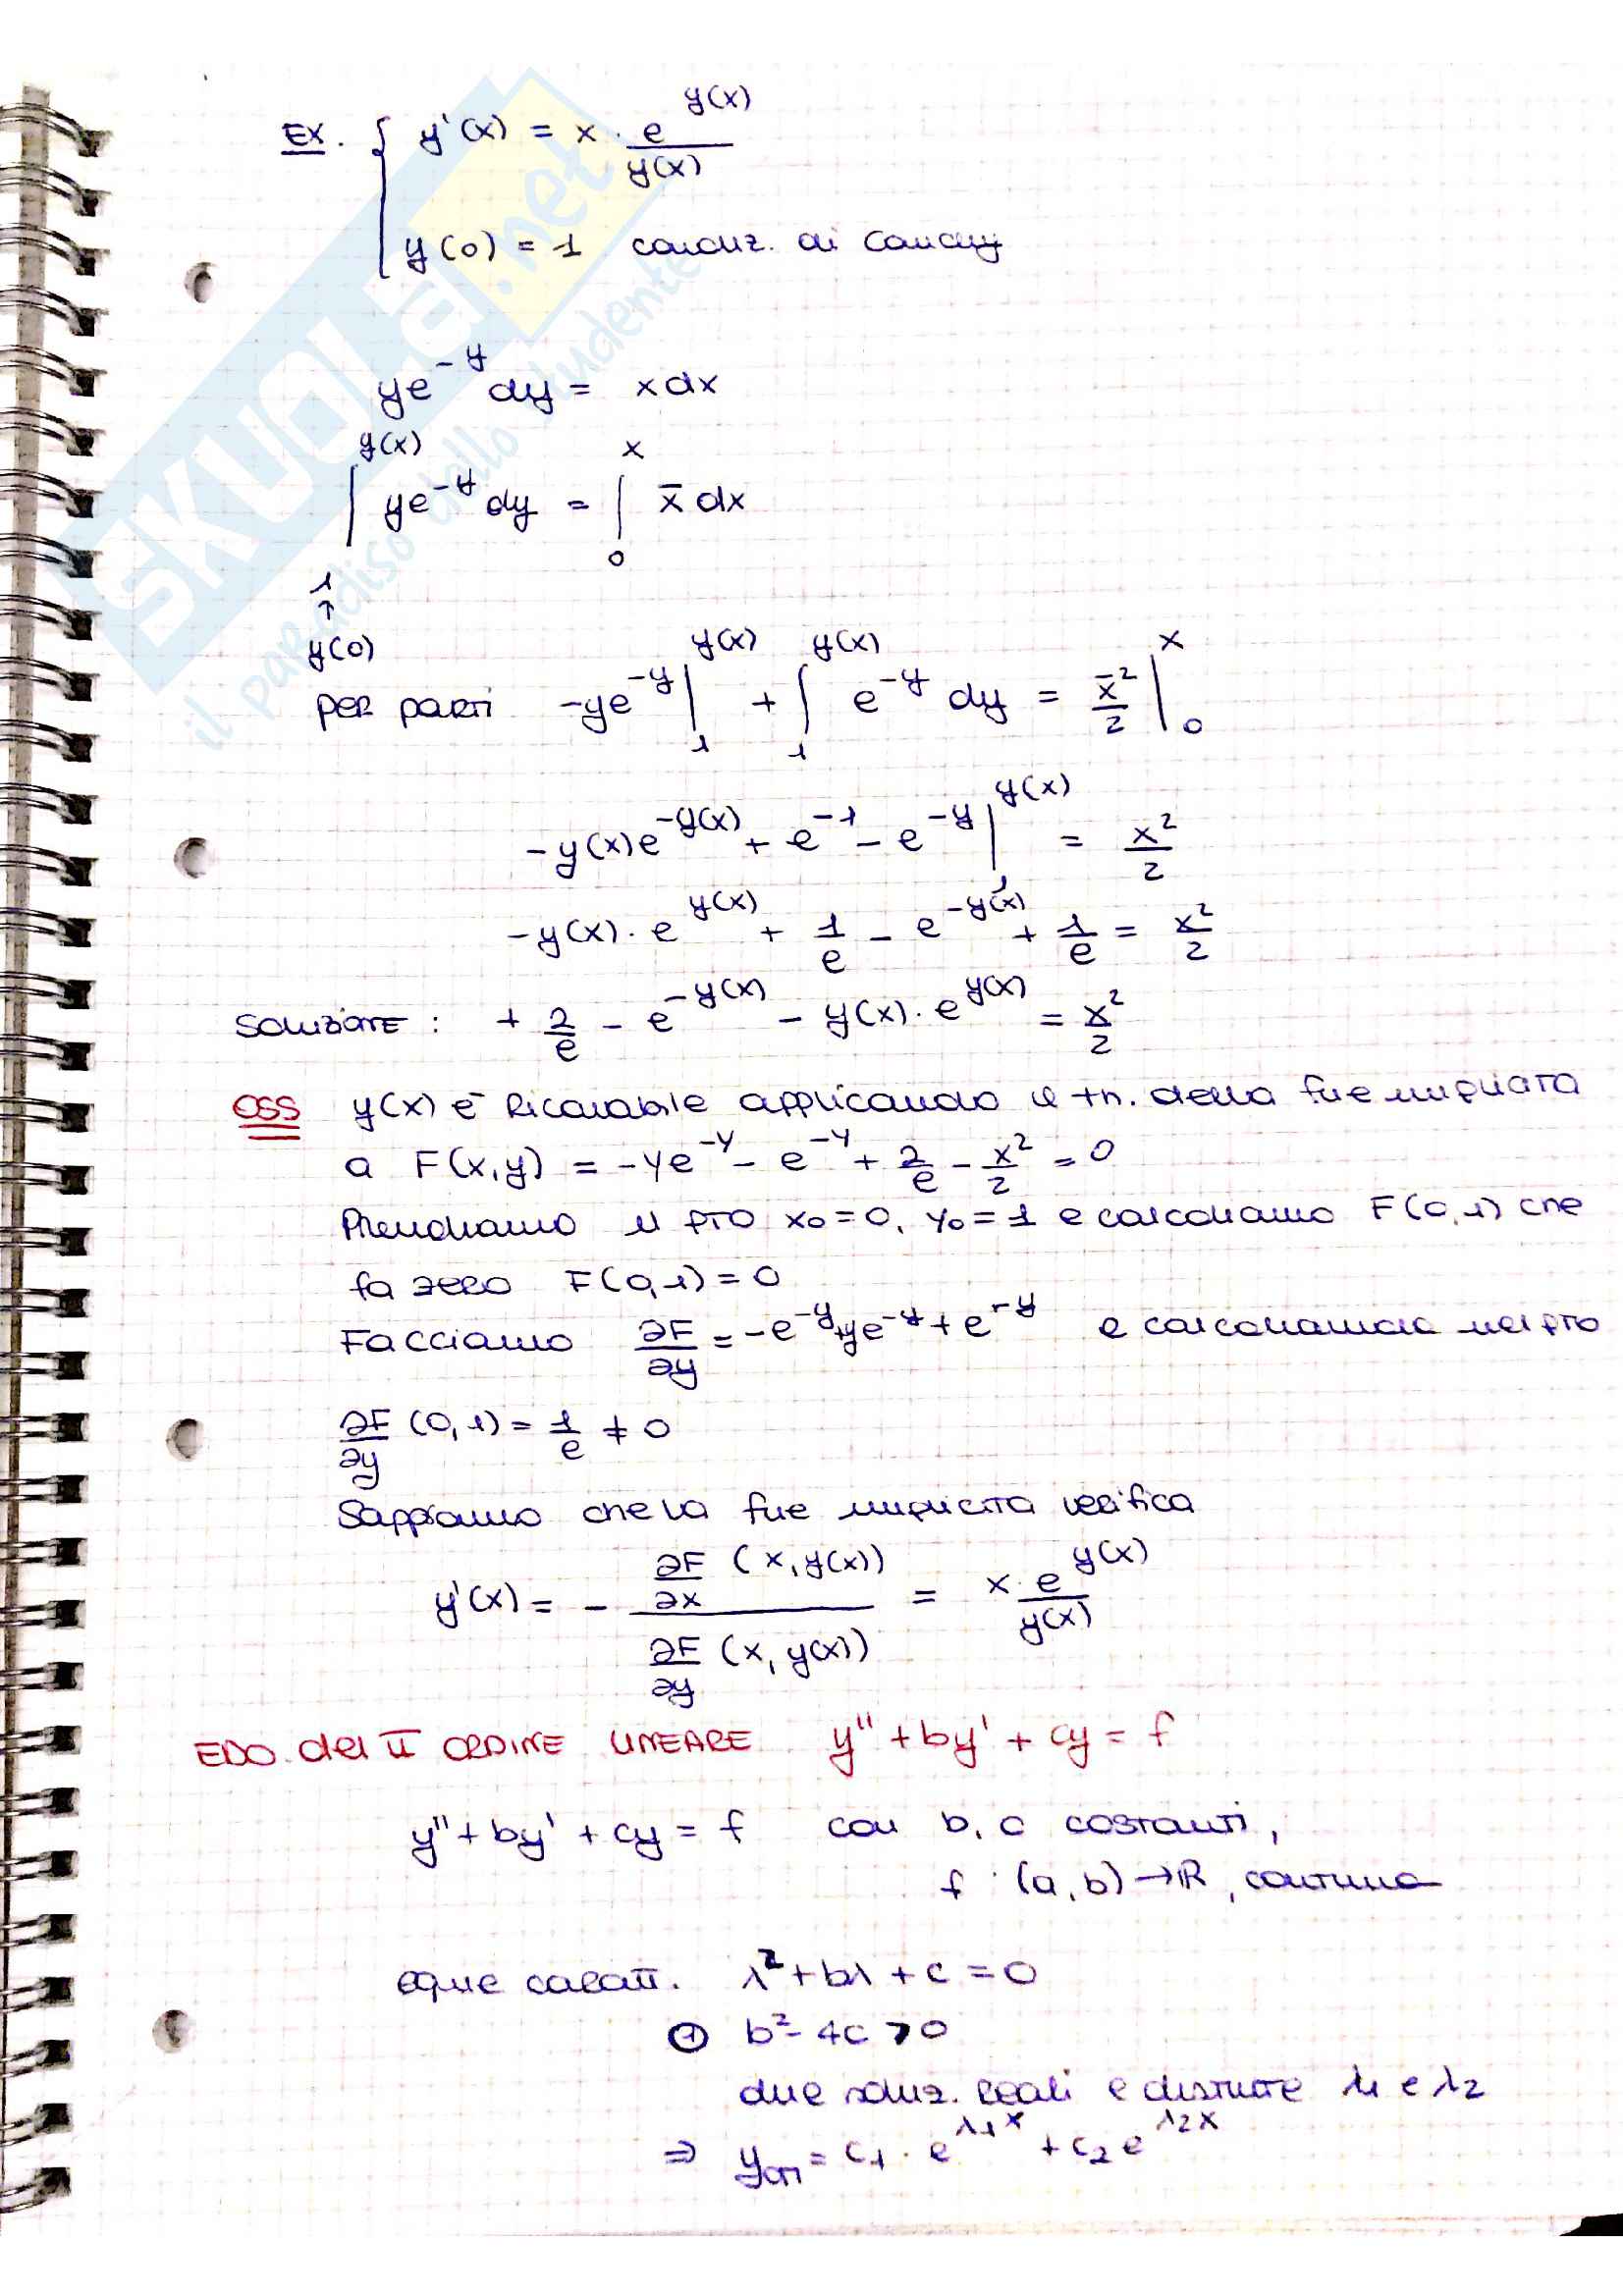 EX. { y'(x) = x · e^y(x) / y(x)
y(0) = 1 condiz. di Cauchy
ye^-y dy = x dx
∫_1^y(x) ye^-y dy = ∫_0^x x̄ dx
↑
y(0)
per parti -ye^-y |_1^y(x) + ∫_1^y(x) e^-y dy = x̄²/2 |_0^x
-y(x)e^-y(x) + e^-1 - e^-y |_1^y(x) = x²/2
-y(x)· e^y(x) + 1/e - e^-y(x) + 1/e = x²/2
Soluzione : + 2/e - e^-y(x) - y(x)· e^y(x) = x²/2
OSS y(x) è ricavabile applicando il th. della fne implicita
a F(x,y) = -ye^-y - e^-y + 2/e - x²/2 = 0
Prendiamo il pto x0=0, y0=1 e calcoliamo F(0,1) che
fa zero F(0,1)=0
Facciamo ∂F/∂y = -e^-y+ye^-y+e^-y e calcoliamola nel pto
∂F/∂y (0,1) = 1/e ≠ 0
Sappiamo che la fne implicita verifica
y'(x) = - ∂F/∂x (x,y(x)) / ∂F/∂y (x,y(x)) = x· e^y(x) / y(x)
EDO del II ORDINE LINEARE y''+by'+cy=f
y''+by'+cy=f con b, c costanti,
f : (a,b)→ℝ, continua
eqne caratt. λ²+bλ+c=0
① b²-4c>0
due soluz. reali e distinte λ1 e λ2
⇒ y_om = c1 · e^λ1x + c2 e^λ2x
SKUOLA.net
il paradiso dello studente